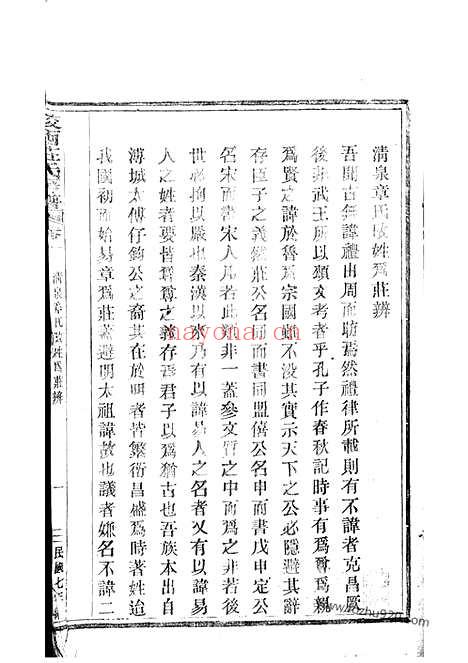 清泉章氏改姓爲莊辨
吾聞古無諱禮出周而昉焉然禮律所載則有不諱者克昌厥
後非武王所以頻文考者乎孔子作春秋記時事有爲尊爲親
爲賢之諱於魯爲宗國雖不沒其實示天下之公必隱避其辭
存臣子之義然莊公名同而書同盟僖公名申而書戊申定公
名宋而書宋人凡若此類非一蓋參文質之中而爲之非若後
世必拘以嚴也秦漢以來乃有以諱易人之名者又有以諱易
人之姓者要皆尊尊之義存焉君子以爲猶古也吾族本出自
溥城太傅仔鈞公之裔其在於明者皆繁衍昌盛爲時著姓迨
我國初而始易章爲莊蓋避明太祖諱故也議者嫌名不諱二
清泉章氏改姓爲莊辨
一
民國七
nayona.cn